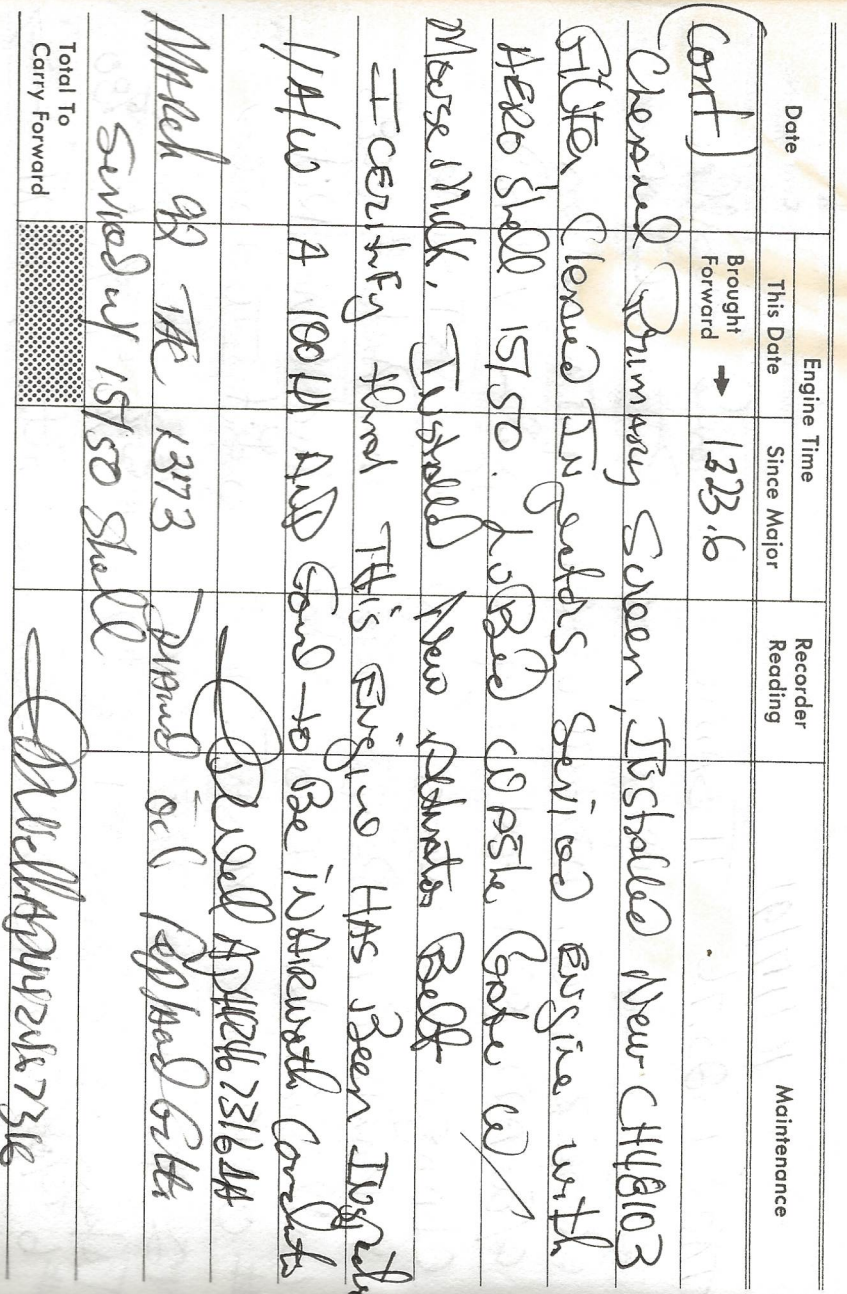 Date
Engine Time
This Date
Since Major
Recorder Reading
Maintenance
(Cont)
Brought Forward → 1223.6
Cleaned Primary Screen, Installed New CH48103
Filter Cleaned Injectors Serviced Engine with
AERO Shell 15/50. LuBed WAste Gate w/
Mouse Milk. Installed New Alternator Belt
I CERtiFy that THis Engine HAS Been Inspected
I/A/W A 100 Hr AND Found to Be iN AIRworth Condito
March 92 TAC 1373 Drained oil Replaced Filter
Serviced w/ 15/50 Shell
Total To Carry Forward